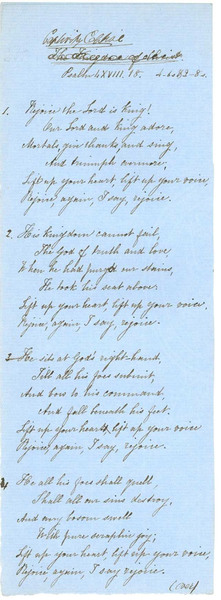 Captivity Captive
The Kingdom of Christ
Psalm LXVIII, 18. 4-6s & 2-8s.
1. Rejoice the Lord is King!
Our Lord and King adore,
Mortals, give thanks and sing,
And triumph evermore;
Lift up your heart, lift up your voice,
Rejoice, again, I say, rejoice.
2. His kingdom cannot fail,
The God of truth and love
When he had purged our stains,
He took his seat above.
Lift up your heart, lift up your voice,
Rejoice, again, I say, rejoice.
3. He sits at God's right-hand,
Till all his foes submit,
And bow to his command,
And fall beneath his feet.
Lift up your heart, lift up your voice
Rejoice, again, I say, rejoice.
4. He all his foes shall quell,
Shall all our sins destroy,
And every bosom swell
With pure seraphic joy;
Lift up your heart, lift up your voice,
Rejoice, again, I say, rejoice.